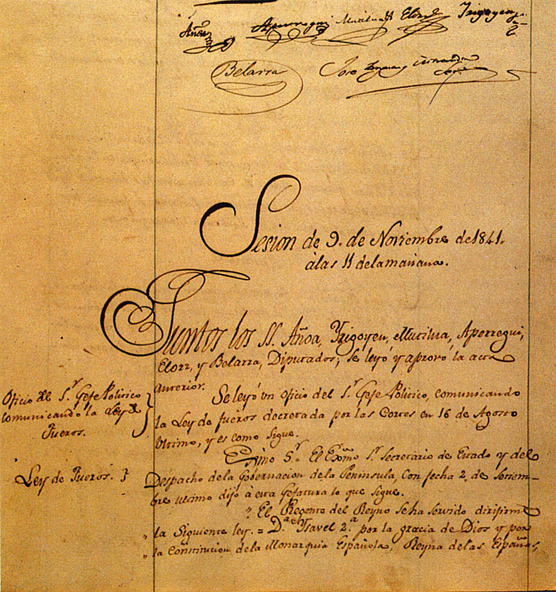 Añoa Aperregui Mutiloa Elorz Yrigoyen
Belarra José
Sesion de 9. de Noviembre de 1841.
á las 11 de la mañana.
Juntos los SS. Añoa, Yrigoyen, Mutiloa, Aperregui,
Elorz, y Belarra, Diputados; se leyó y aprovó la acta
anterior.
Oficio del Sr. Gefe Político
comunicando la Ley de
Fueros.
Se leyó un oficio del Sr. Gefe Político, comunicando
la Ley de fueros decretada por las Cortes en 16 de Agosto
último, y es como sigue.
Ley de Fueros.
5º. El Exmo. Sr. Secretario de Estado y del
Despacho de la Gobernacion de la Península, con fecha 2, de Setiem-
bre último dijo á esta Gefatura lo que sigue.
" El Regente del Reyno se ha servido dirigirme
" la Siguiente ley. = Dª. Ysavel 2ª. por la gracia de Dios y por
" la Constitucion de la Monarquia Española, Reyna de las Españas,